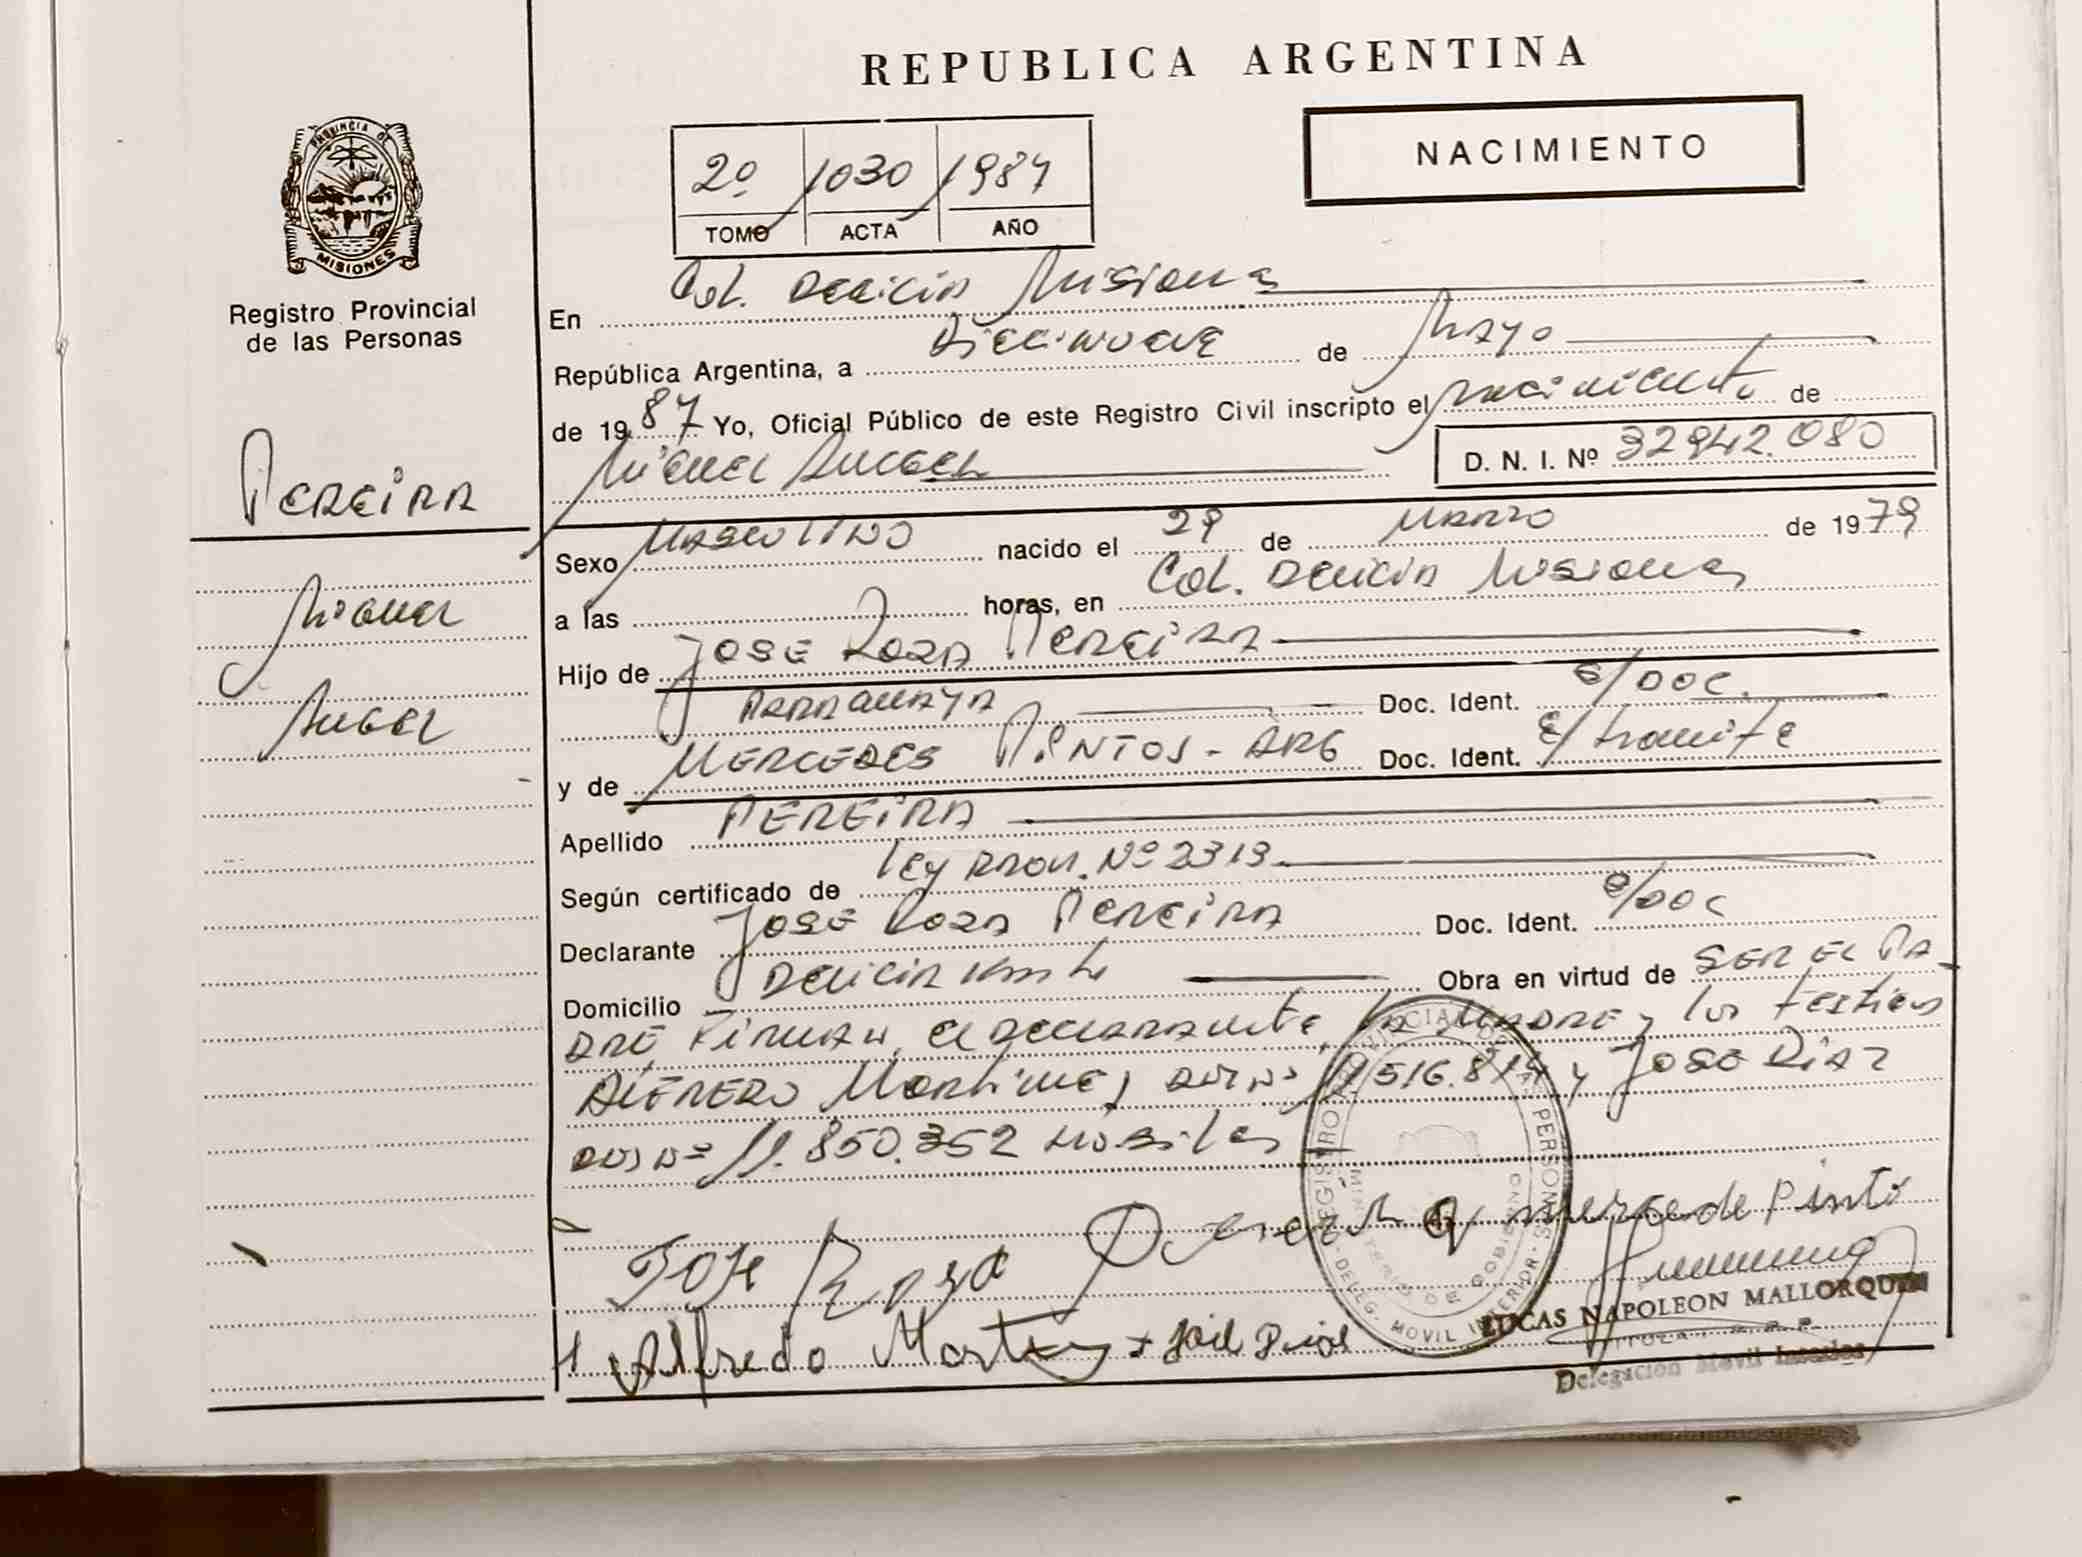 REPUBLICA ARGENTINA
PROVINCIA DE
MISIONES
Registro Provincial
de las Personas
2º 1030 1987
TOMO ACTA AÑO
NACIMIENTO
PEREIRA
Miguel
Angel
En Col. Delicia Misiones
República Argentina, a Diecinueve de Mayo
de 1987 Yo, Oficial Público de este Registro Civil inscripto el nacimiento de
Miguel Angel D. N. I. Nº 32942.080
Sexo Masculino nacido el 29 de Marzo de 1979
a las horas, en Col. Delicia Misiones
Hijo de Jose Roza Pereira
Paraguaya Doc. Ident. s/doc.
y de Mercedes Pintos - Arg Doc. Ident. E/tramite
Apellido PEREIRA
Según certificado de Ley Prov. Nº 2313
Declarante Jose Roza Pereira Doc. Ident. s/doc
Domicilio Delicia Obra en virtud de SER EL PA
DRE Firman el declarante, la Madre y los testigos
Alfredo Martinez y Jose Diaz
11.850.352
Jose Roza Pereira Mercede Pinto
Alfredo Martinez
REGISTRO PROVINCIAL DE LAS PERSONAS
MINISTERIO DE GOBIERNO
DELEG. MOVIL INTERIOR
LUCAS NAPOLEON MALLORQUIN
TITULAR R.P.P.
Delegacion Movil Interior